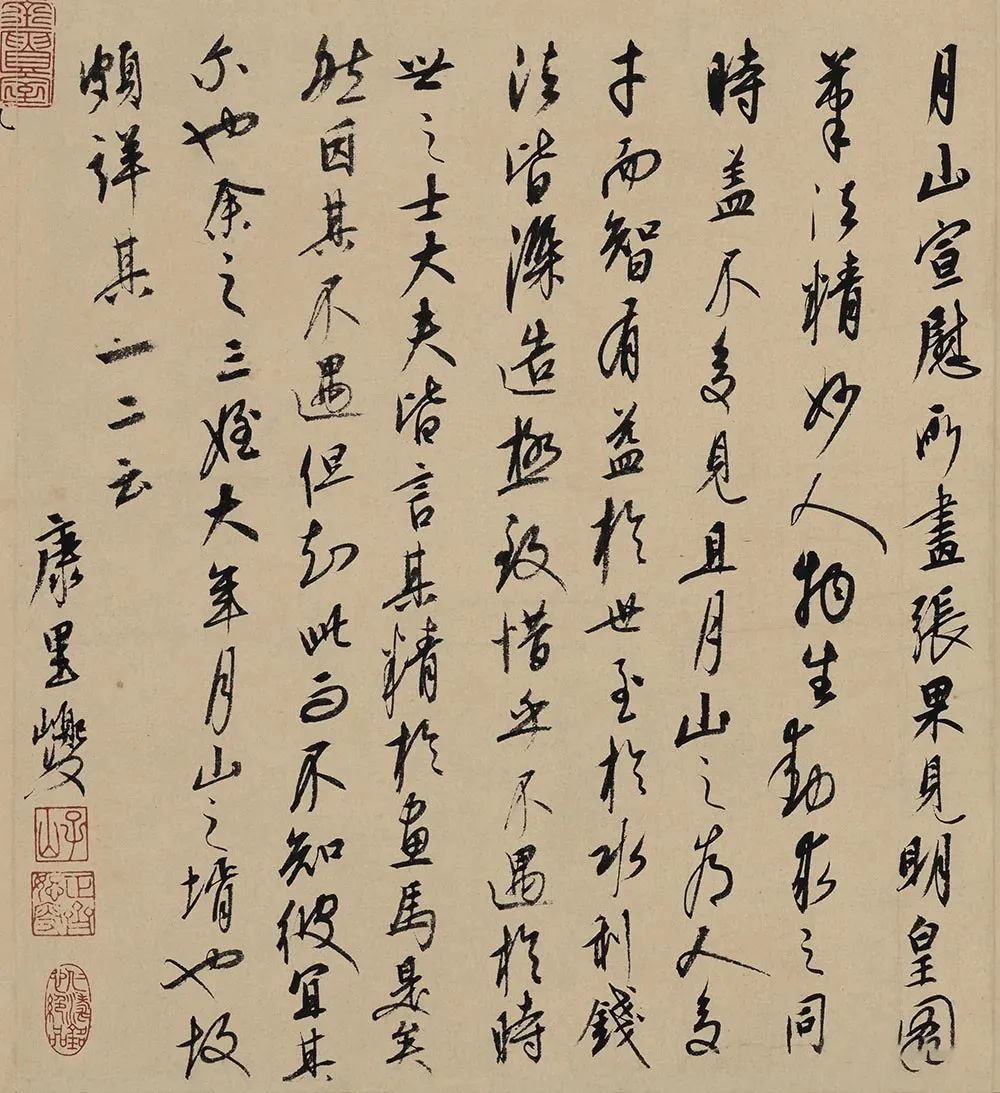 月山宣慰所畫張果見明皇圖
筆法精妙人物生動求之同
時盖不多見且月山之為人多
才而智有益於世至於水利錢
法皆深造極致惜乎不遇於時
世之士大夫皆言其精於畫馬是矣
然因其不遇但知此而不知彼宜其
尓也余之三姪大年月山之壻也故
頗詳其一二云
康里巎
子山